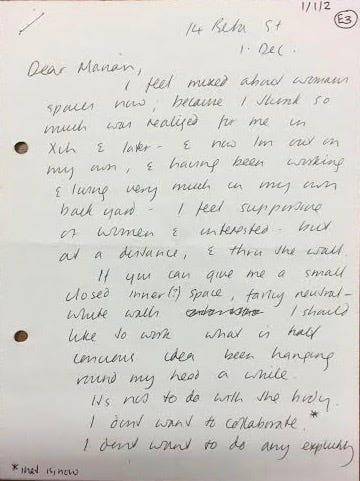 1/1/2
E3
14 Beta St
1. Dec.
Dear Marian,
I feel mixed about womans
spaces now, because I think so
much was realised for me in
& later - & now Im out on
my own, & having been working
& living very much in my own
back yard - I feel supportive
of women & interested - but
at a distance, & thru the wall.
If you can give me a small
closed inner(?) space, fairly neutral -
white walls I should
like to work what is half
concious idea been hanging
round my head a while.
Its not to do with the body.
I dont want to collaborate.*
I dont want to do any explicitly
*that is now